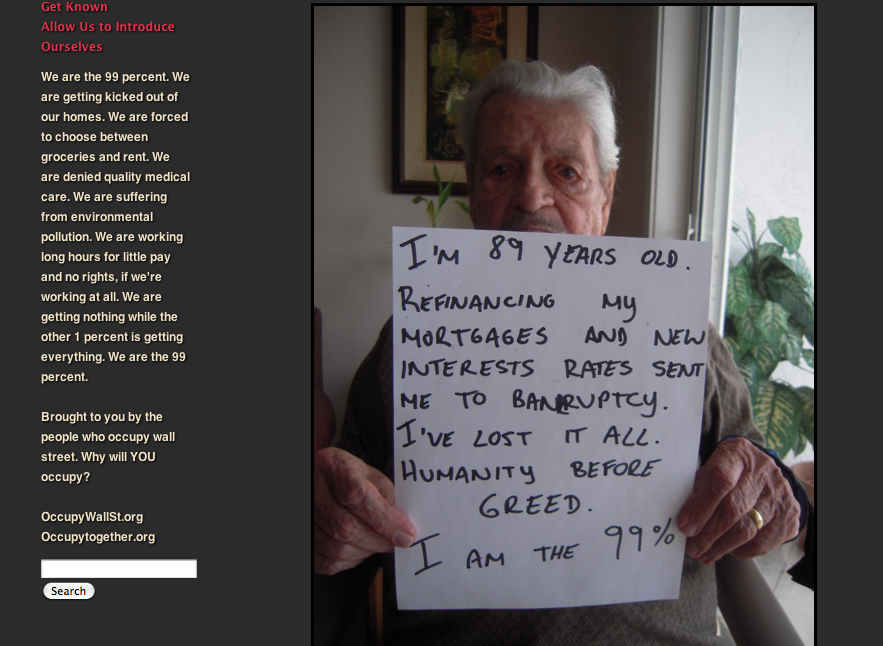 Get Known
Allow Us to Introduce
Ourselves
We are the 99 percent. We
are getting kicked out of
our homes. We are forced
to choose between
groceries and rent. We
are denied quality medical
care. We are suffering
from environmental
pollution. We are working
long hours for little pay
and no rights, if we're
working at all. We are
getting nothing while the
other 1 percent is getting
everything. We are the 99
percent.
Brought to you by the
people who occupy wall
street. Why will YOU
occupy?
OccupyWallSt.org
Occupytogether.org
Search
I'M 89 YEARS OLD.
REFINANCING MY
MORTGAGES AND NEW
INTERESTS RATES SENT
ME TO BANKRUPTCY.
I'VE LOST IT ALL.
HUMANITY BEFORE
GREED.
I AM THE 99%